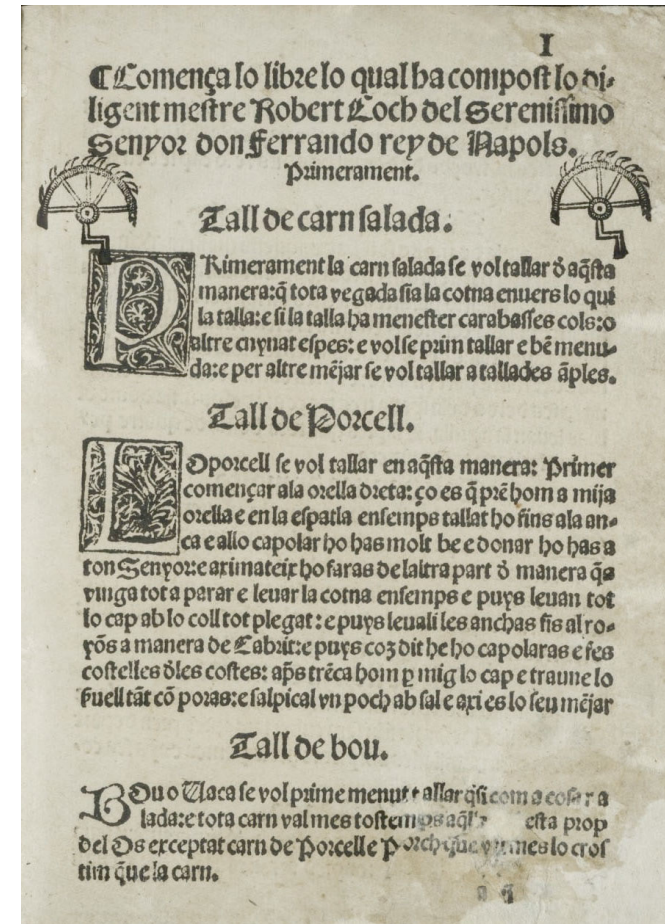 I
¶ Comença lo libre lo qual ha compost lo di-
ligent mestre Robert Coch del Serenissimo
Senyor don Ferrando rey de Napols.
Primerament.
Tall de carn salada.
PRimerament la carn salada se vol tallar d̄ aq̄sta
manera: q̄ tota vegada sia la cotna enuers lo qui
la talla: e si la talla ha menester carabasses cols: o
altre cuynat espes: e vol se prim tallar e bē menu-
da: e per altre mējar se vol tallar a tallades āples.
Tall de Porcell.
LO porcell se vol tallar en aq̄sta manera: Primer
començar ala orella dreta: ço es q̄ prē hom a mija
orella e en la espatla ensemps tallat ho fins ala an-
ca e allo capolar ho has molt be e donar ho has a
ton Senyor: e aximateix ho faras de laltra part d̄ manera q̄a
vinga tot a parar e leuar la cotna ensemps e puys leuan tot
lo cap ab lo coll tot plegat: e puys leuali les anchas fis al ro-
yōs a manera de Cabrit: e puys coȝ dit he ho capolaras e ses
costelles d̄les costes: ap̄s trēca hom ꝑ mig lo cap e traune lo
seruell tāt cō poras: e salpical vn poch ab sal e axi es lo seu mējar
Tall de bou.
BOu o Uaca se vol prime menut tallar q̄si com a cosa r a
lada: e tota carn val mes tostemps esta prop
del Os exceptat carn de Porcell e Porch que mes lo cros
tim q̄ue la carn.